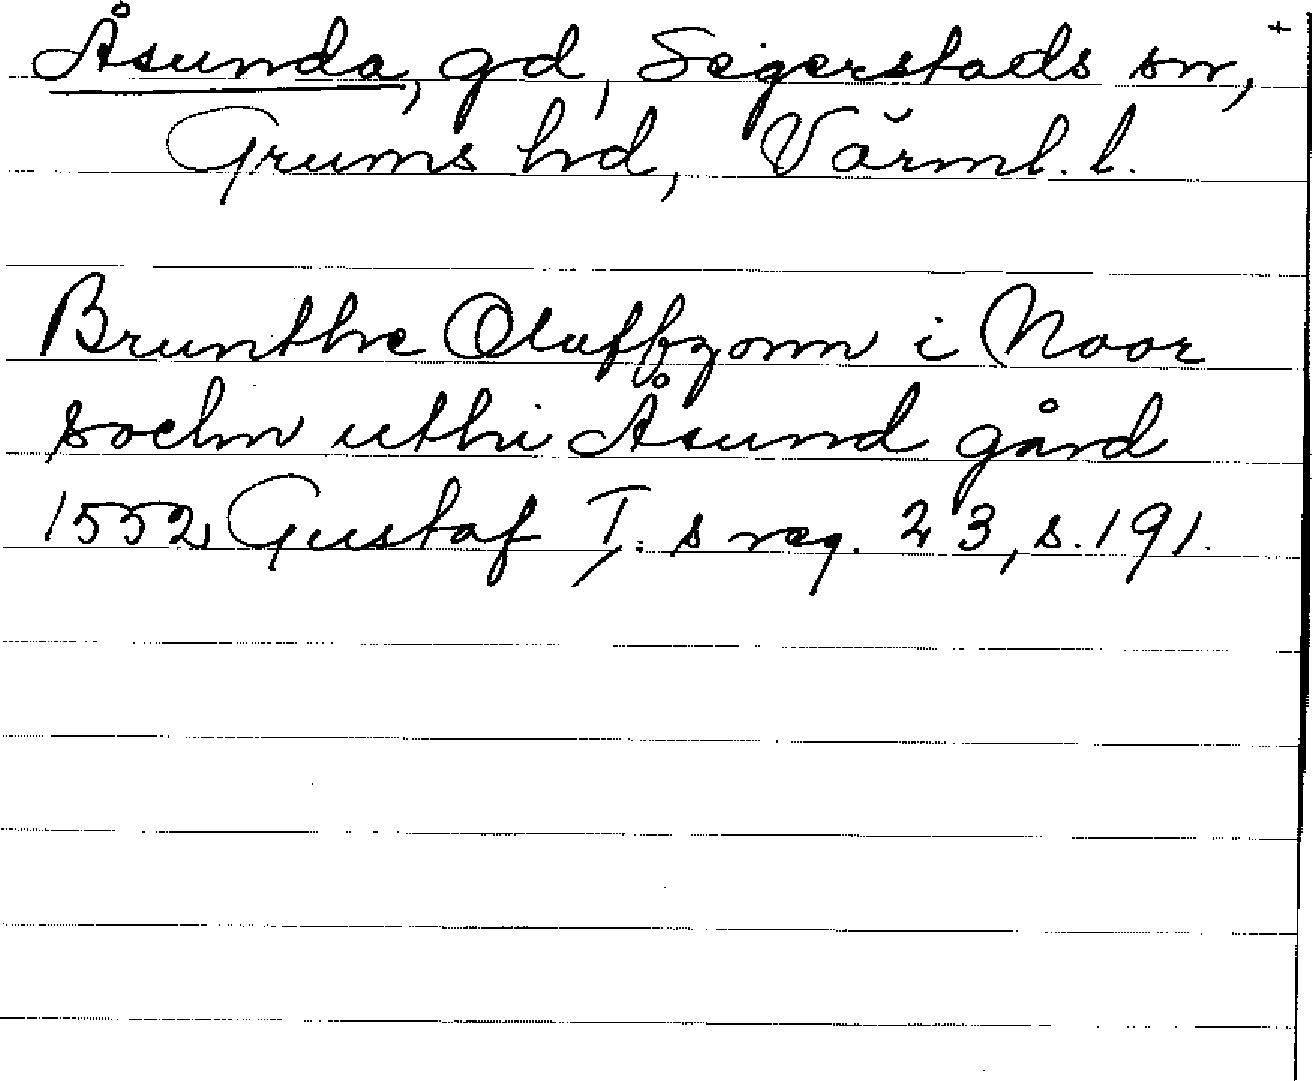 Åsunda, gd, Segerstads sn,
Grums hd, Värml. l.
Brunthe Oluffzonn i Noor
sochn uthi Åsund gård
1552 Gustaf I:s reg. 23, s. 191.